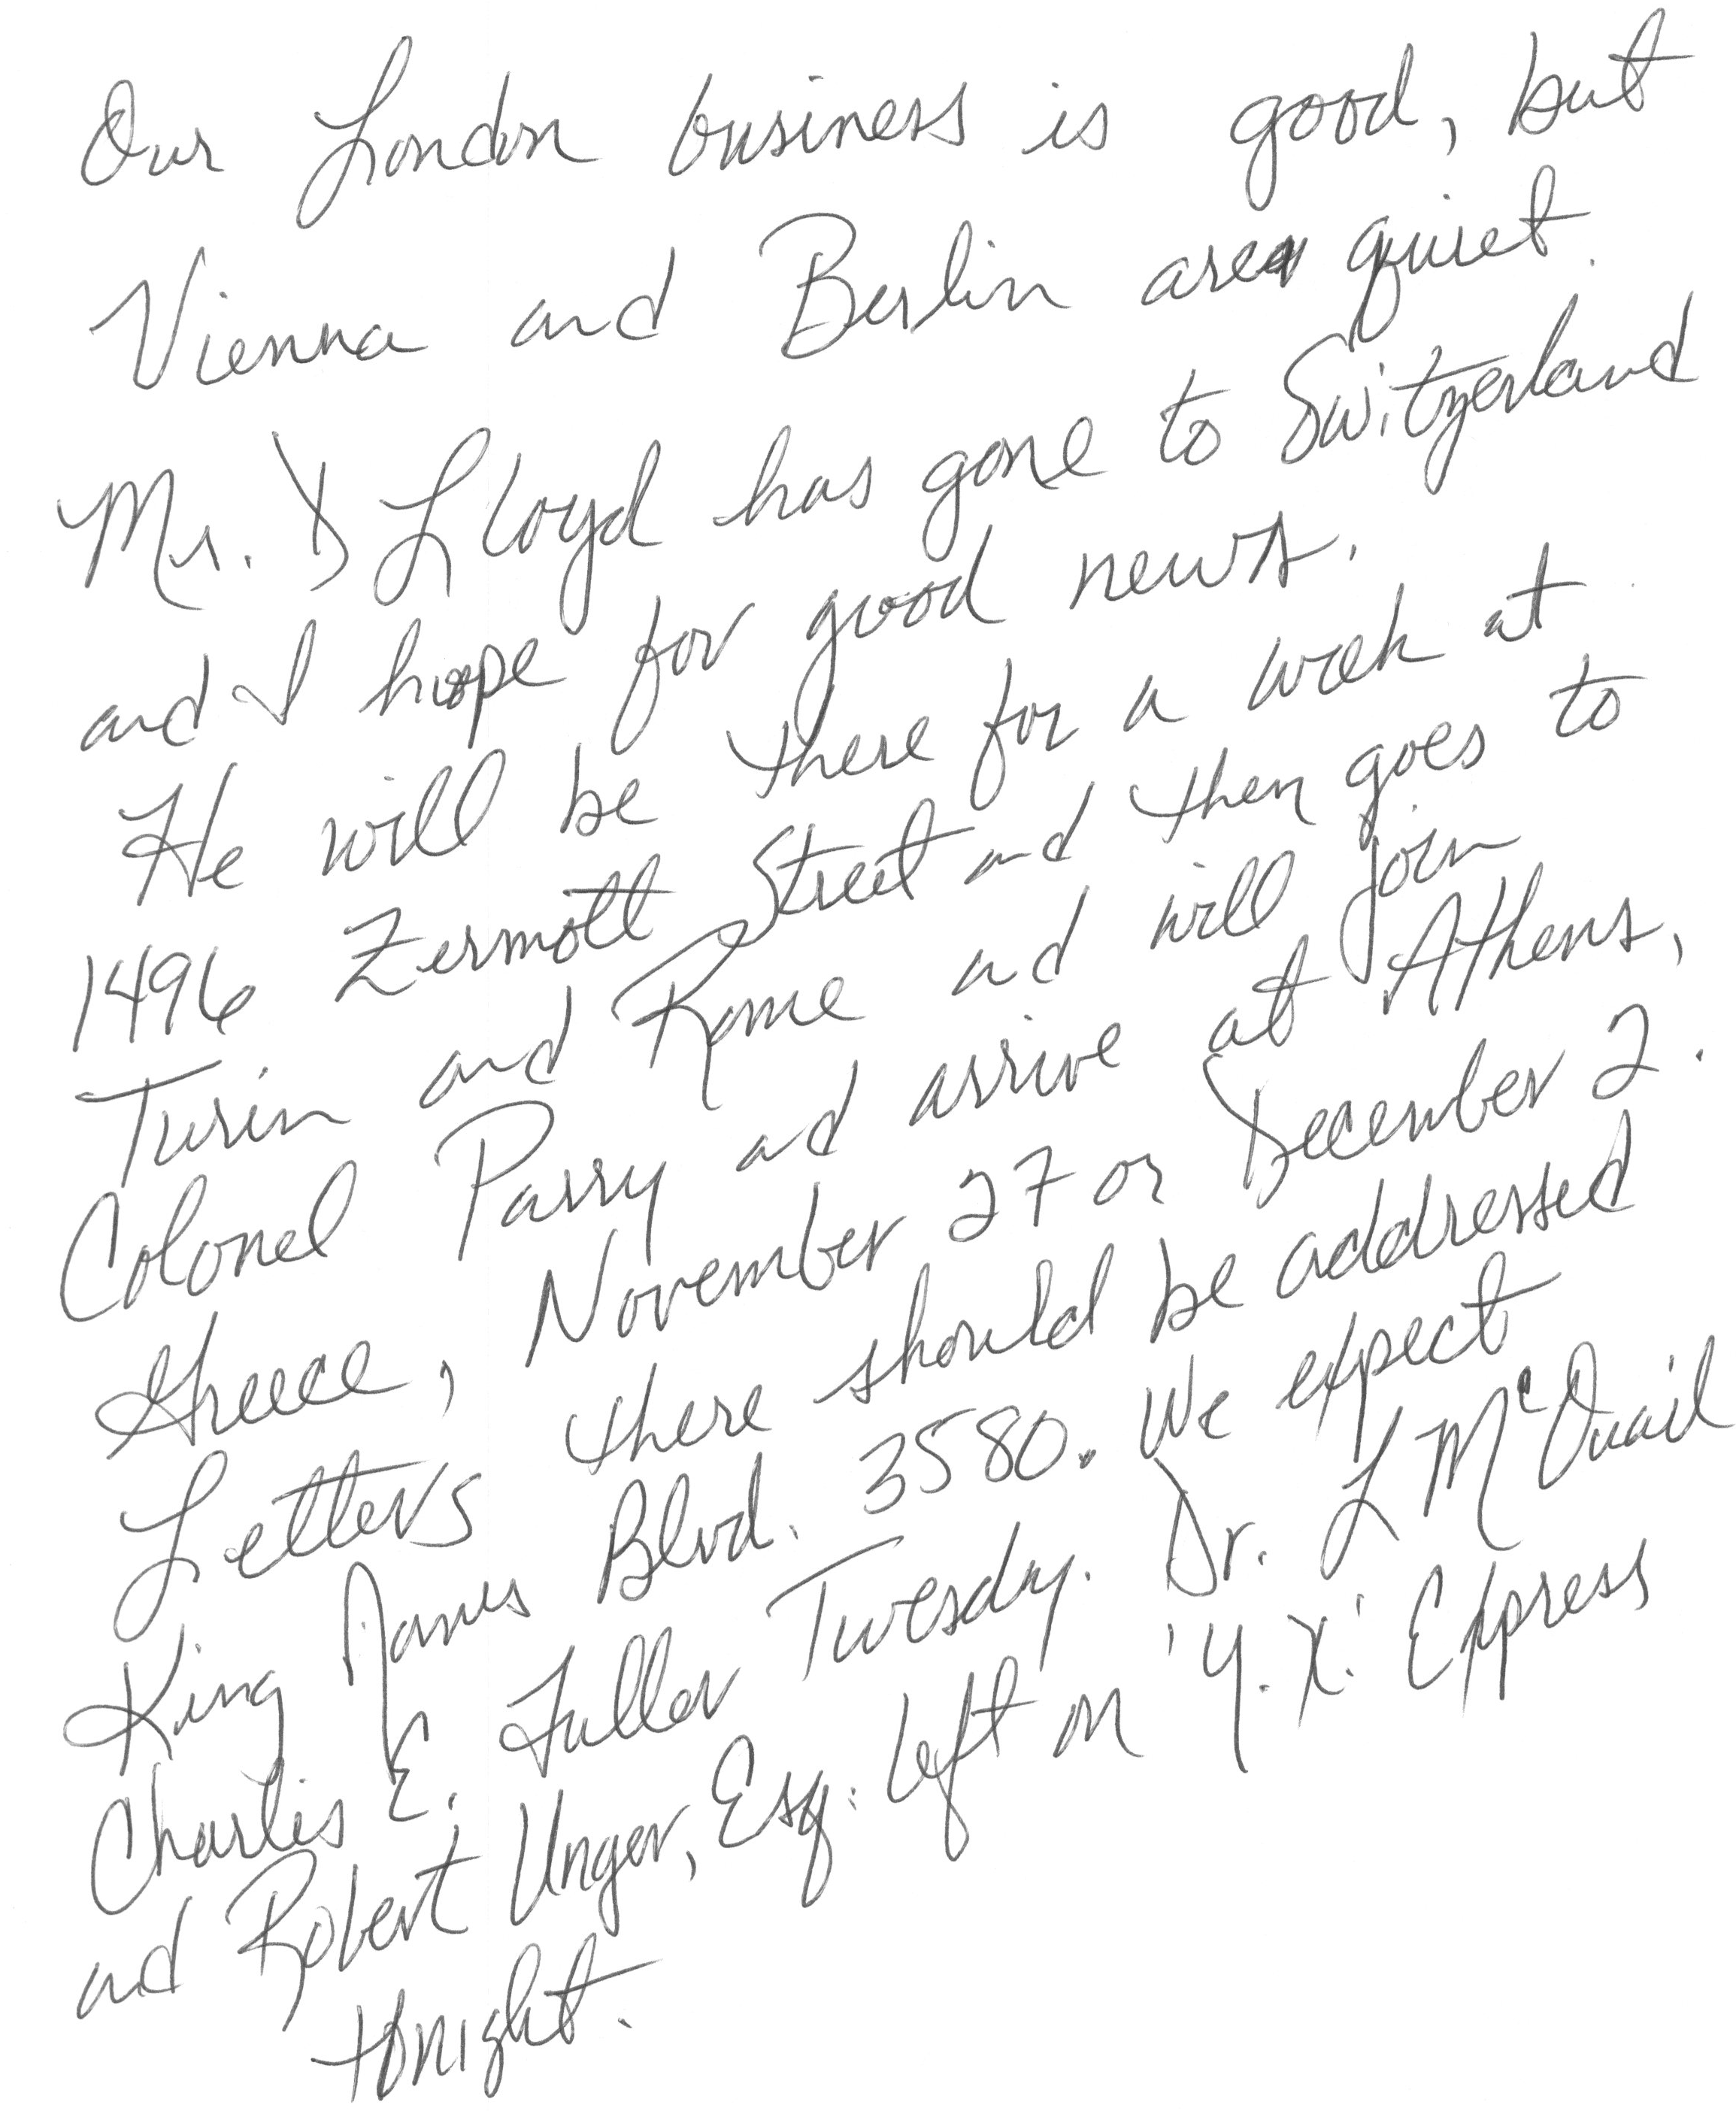 Our London business is good, but
Vienna and Berlin are quiet.
Mr. D Lloyd has gone to Switzerland
and I hope for good news.
He will be there for a week at
1496 Zermott Street and then goes to
Turin and Rome and will join
Colonel Parry and arrive at Athens,
Greece, November 27 or December 2.
Letters there should be addressed
King James Blvd. 3580. We expect
Charles E. Fuller Tuesday. Dr. L McQuaid
and Robert Unger, Esq. left on 'Y.X.' Express
tonight.